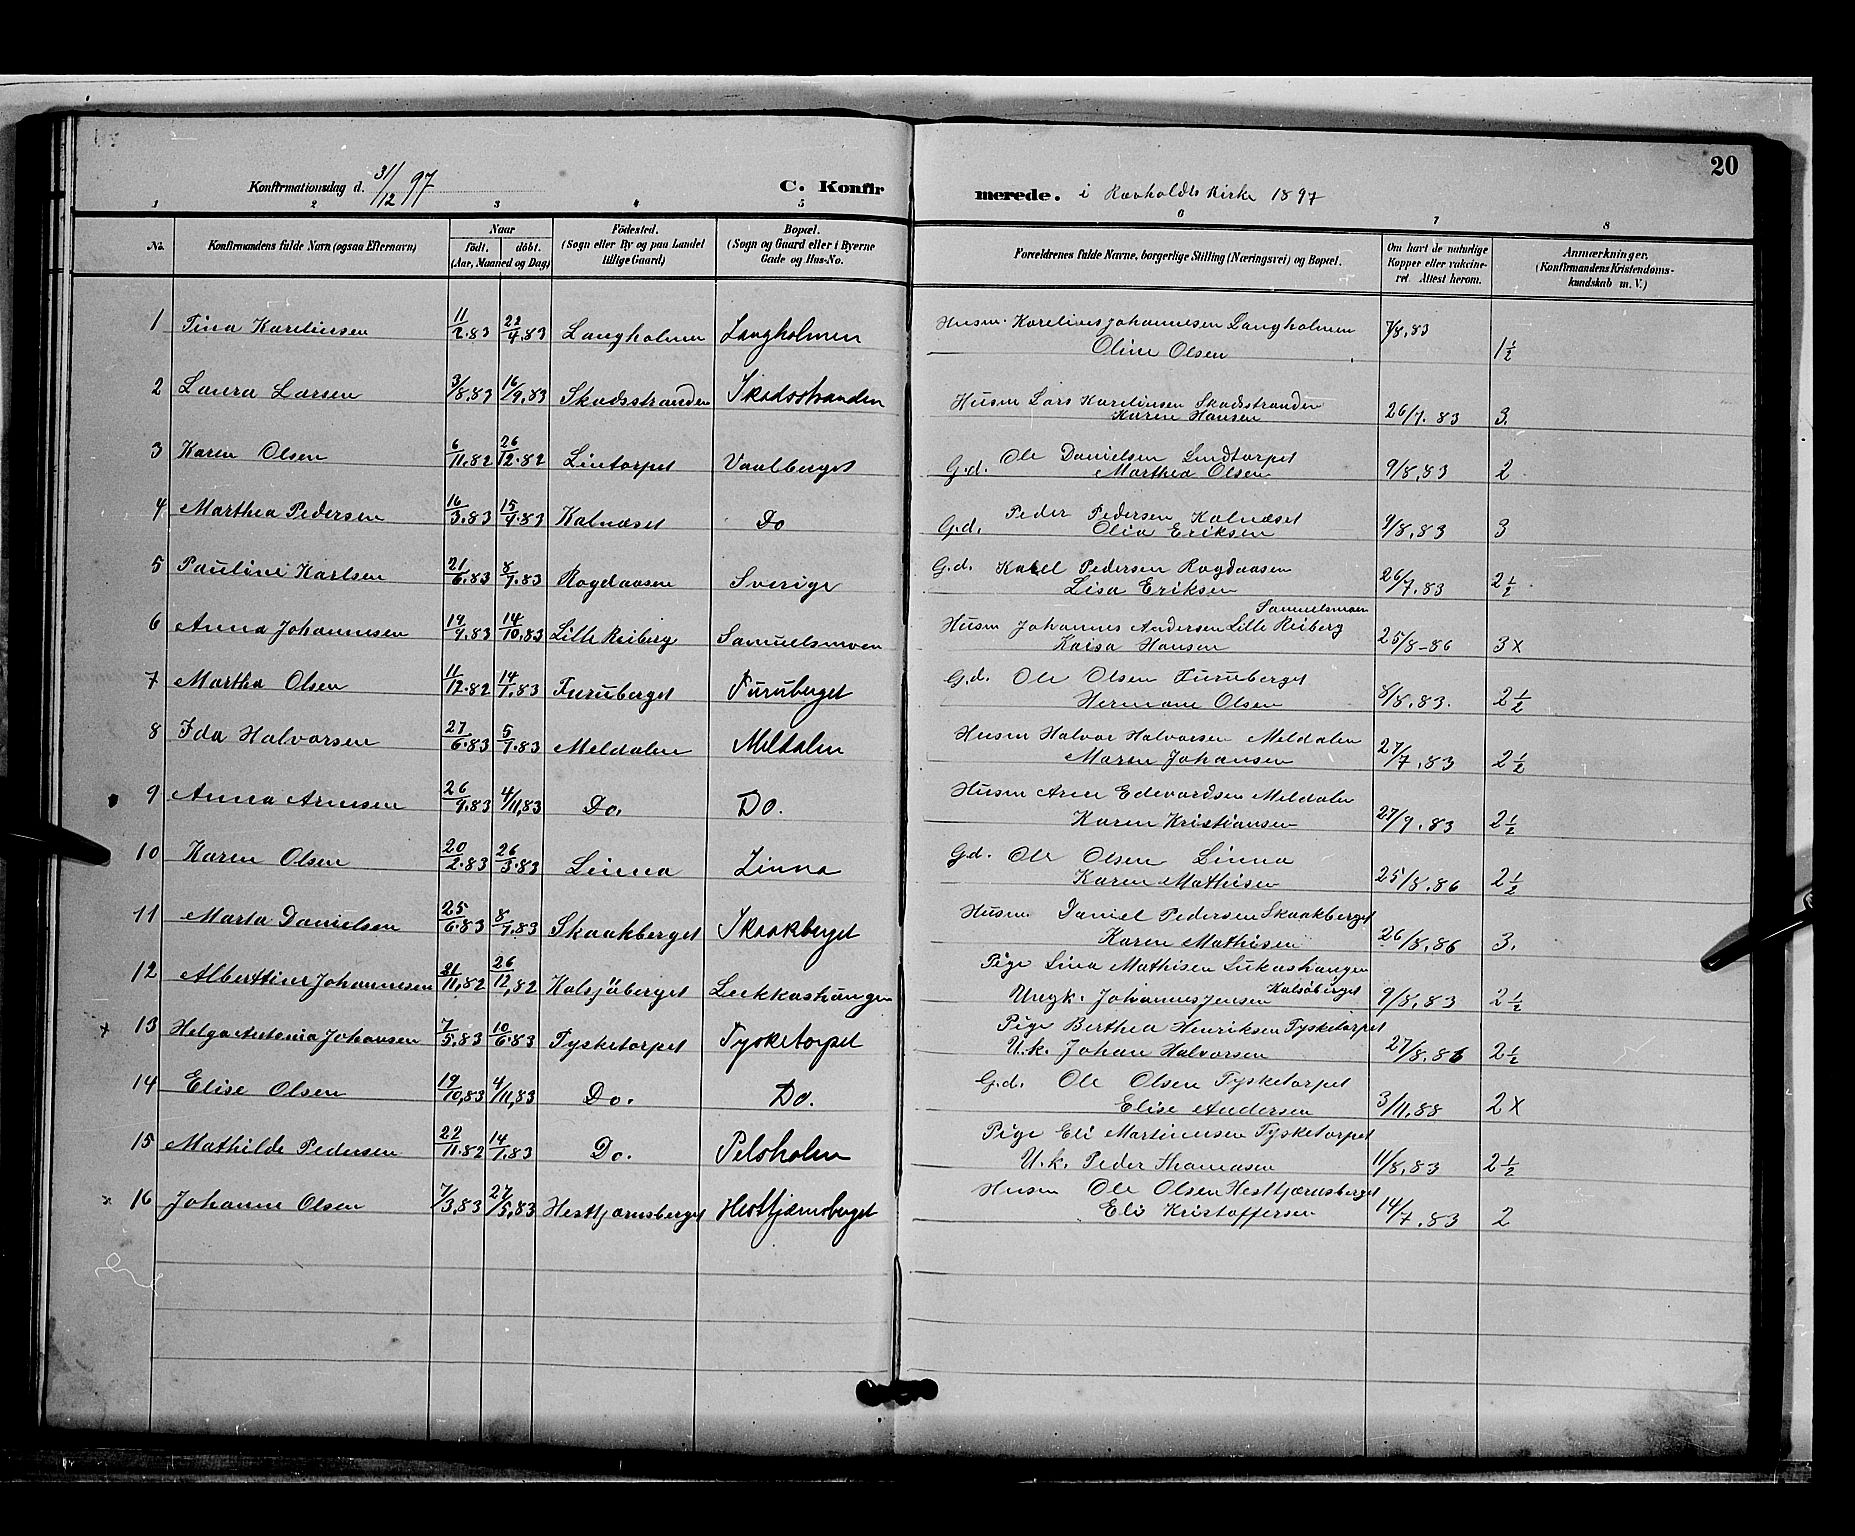 20
Konfirmationsdag d. 31/12 97 C. Konfirmerede. i Ravholdts Kirke 1897
1 2 3 4 5 6 7 8
No. Konfirmandens fulde Navn (ogsaa Efternavn) Naar födt. döbt. (Aar, Maaned og Dag) Födested. (Sogn eller By og paa Landet tillige Gaard) Bopæl. (Sogn og Gaard eller i Byerne Gade og Hus-No. Forældrenes fulde Navne, borgerlige Stilling (Næringsvei) og Bopæl. Om havt de naturlige Kopper eller vakcineret. Attest herom. Anmærkninger. (Konfirmandens Kristendomskundskab m. V.)
1 Tina Karelinsen 11/2.83 22/4.83 Langholmen Langholmen Husm. Karelius Johannesen Langholmen 7/8.83
Oline Olsen 1½
2 Laura Larsen 3/8.83 16/9.83 Skadsstranden Skadsstranden Husm Lars Karelinsen Skadsstranden
Karen Hansen 26/7.83 3.
3 Karen Olsen 6/11.82 26/12.82 Lintorpet Vaalberget G.d. Ole Danielsen Lindtorpet
Marthea Olsen 9/8.83 2
4 Marthea Pedersen 16/3.83 15/4.83 Kalnæset Do G.d. Peder Pedersen Kalnæset
Olia Eriksen 9/8.83 3
5 Pauline Karlsen 21/6.83 8/7.83 Rogdaasen Sverige G.d. Karl Pedersen Rogdaasen
Lisa Eriksen 26/7.83 2½
Samuelsmoen
6 Anna Johannesen 19/9.83 14/10.83 Lille Reiberg Samuelsmoen Husm Johannes Andersen Lille Reiberg
Kaisa Hansen 25/8-86 3x
7 Martha Olsen 11/12.82 14/1.83 Furuberget Furuberget G.d. Ole Olsen Furuberget
Hermane Olsen 8/8.83. 2½
8 Ida Halvorsen 27/6.83 5/7.83 Meldalen Meldalen Husm Halvor Halvorsen Meldalen
Maren Johansen 27/7.83 2½
9 Anna Arnesen 26/9.83 4/11.83 Do. Do. Husm Arne Edevardsen Meldalen
Karen Kristiansen 27/9.83 2½
10 Karen Olsen 20/2.83 26/3.83 Linna Linna G.d. Ole Olsen Linna
Karen Mathisen 25/8.86 2½
11 Marta Danielsen 25/6.83 8/7.83 Skaakberget Skaakberget Husm. Daniel Pedersen Skaakberget
Karen Mathisen 26/8.86 3.
12 Alberttine Johannesen 21/11.82 26/12.82 Kalsjöberget Lukkashangen Pige Lina Mathisen Lukashangen
Ungk. Johannes Jensen Kalsöberget 9/8.83 2½
x 13 Helga Antonia Johansen 7/5.83 10/6.83 Tysketorpet Tysketorpet Pige Berthea Henriksen Tysketorpet
U.k. Johan Halvorsen 27/8.86 2½
14 Elise Olsen 19/10.83 4/11.83 Do. Do. G.d. Ole Olsen Tysketorpet
Elise Andersen 3/11.88 2x
15 Mathilde Pedersen 22/11.82 14/1.83 Do. Pelsholen Pige Eli Martinensen Tysketorpet
U.k. Peder Thomasen 11/8.83 2½
x 16 Johanne Olsen 7/3.83 27/5.83 Hestfjærnsberget Hestfjærnsberget Husm Ole Olsen Hestfjærnsberget
Eli Kristoffersen 14/7.83 2